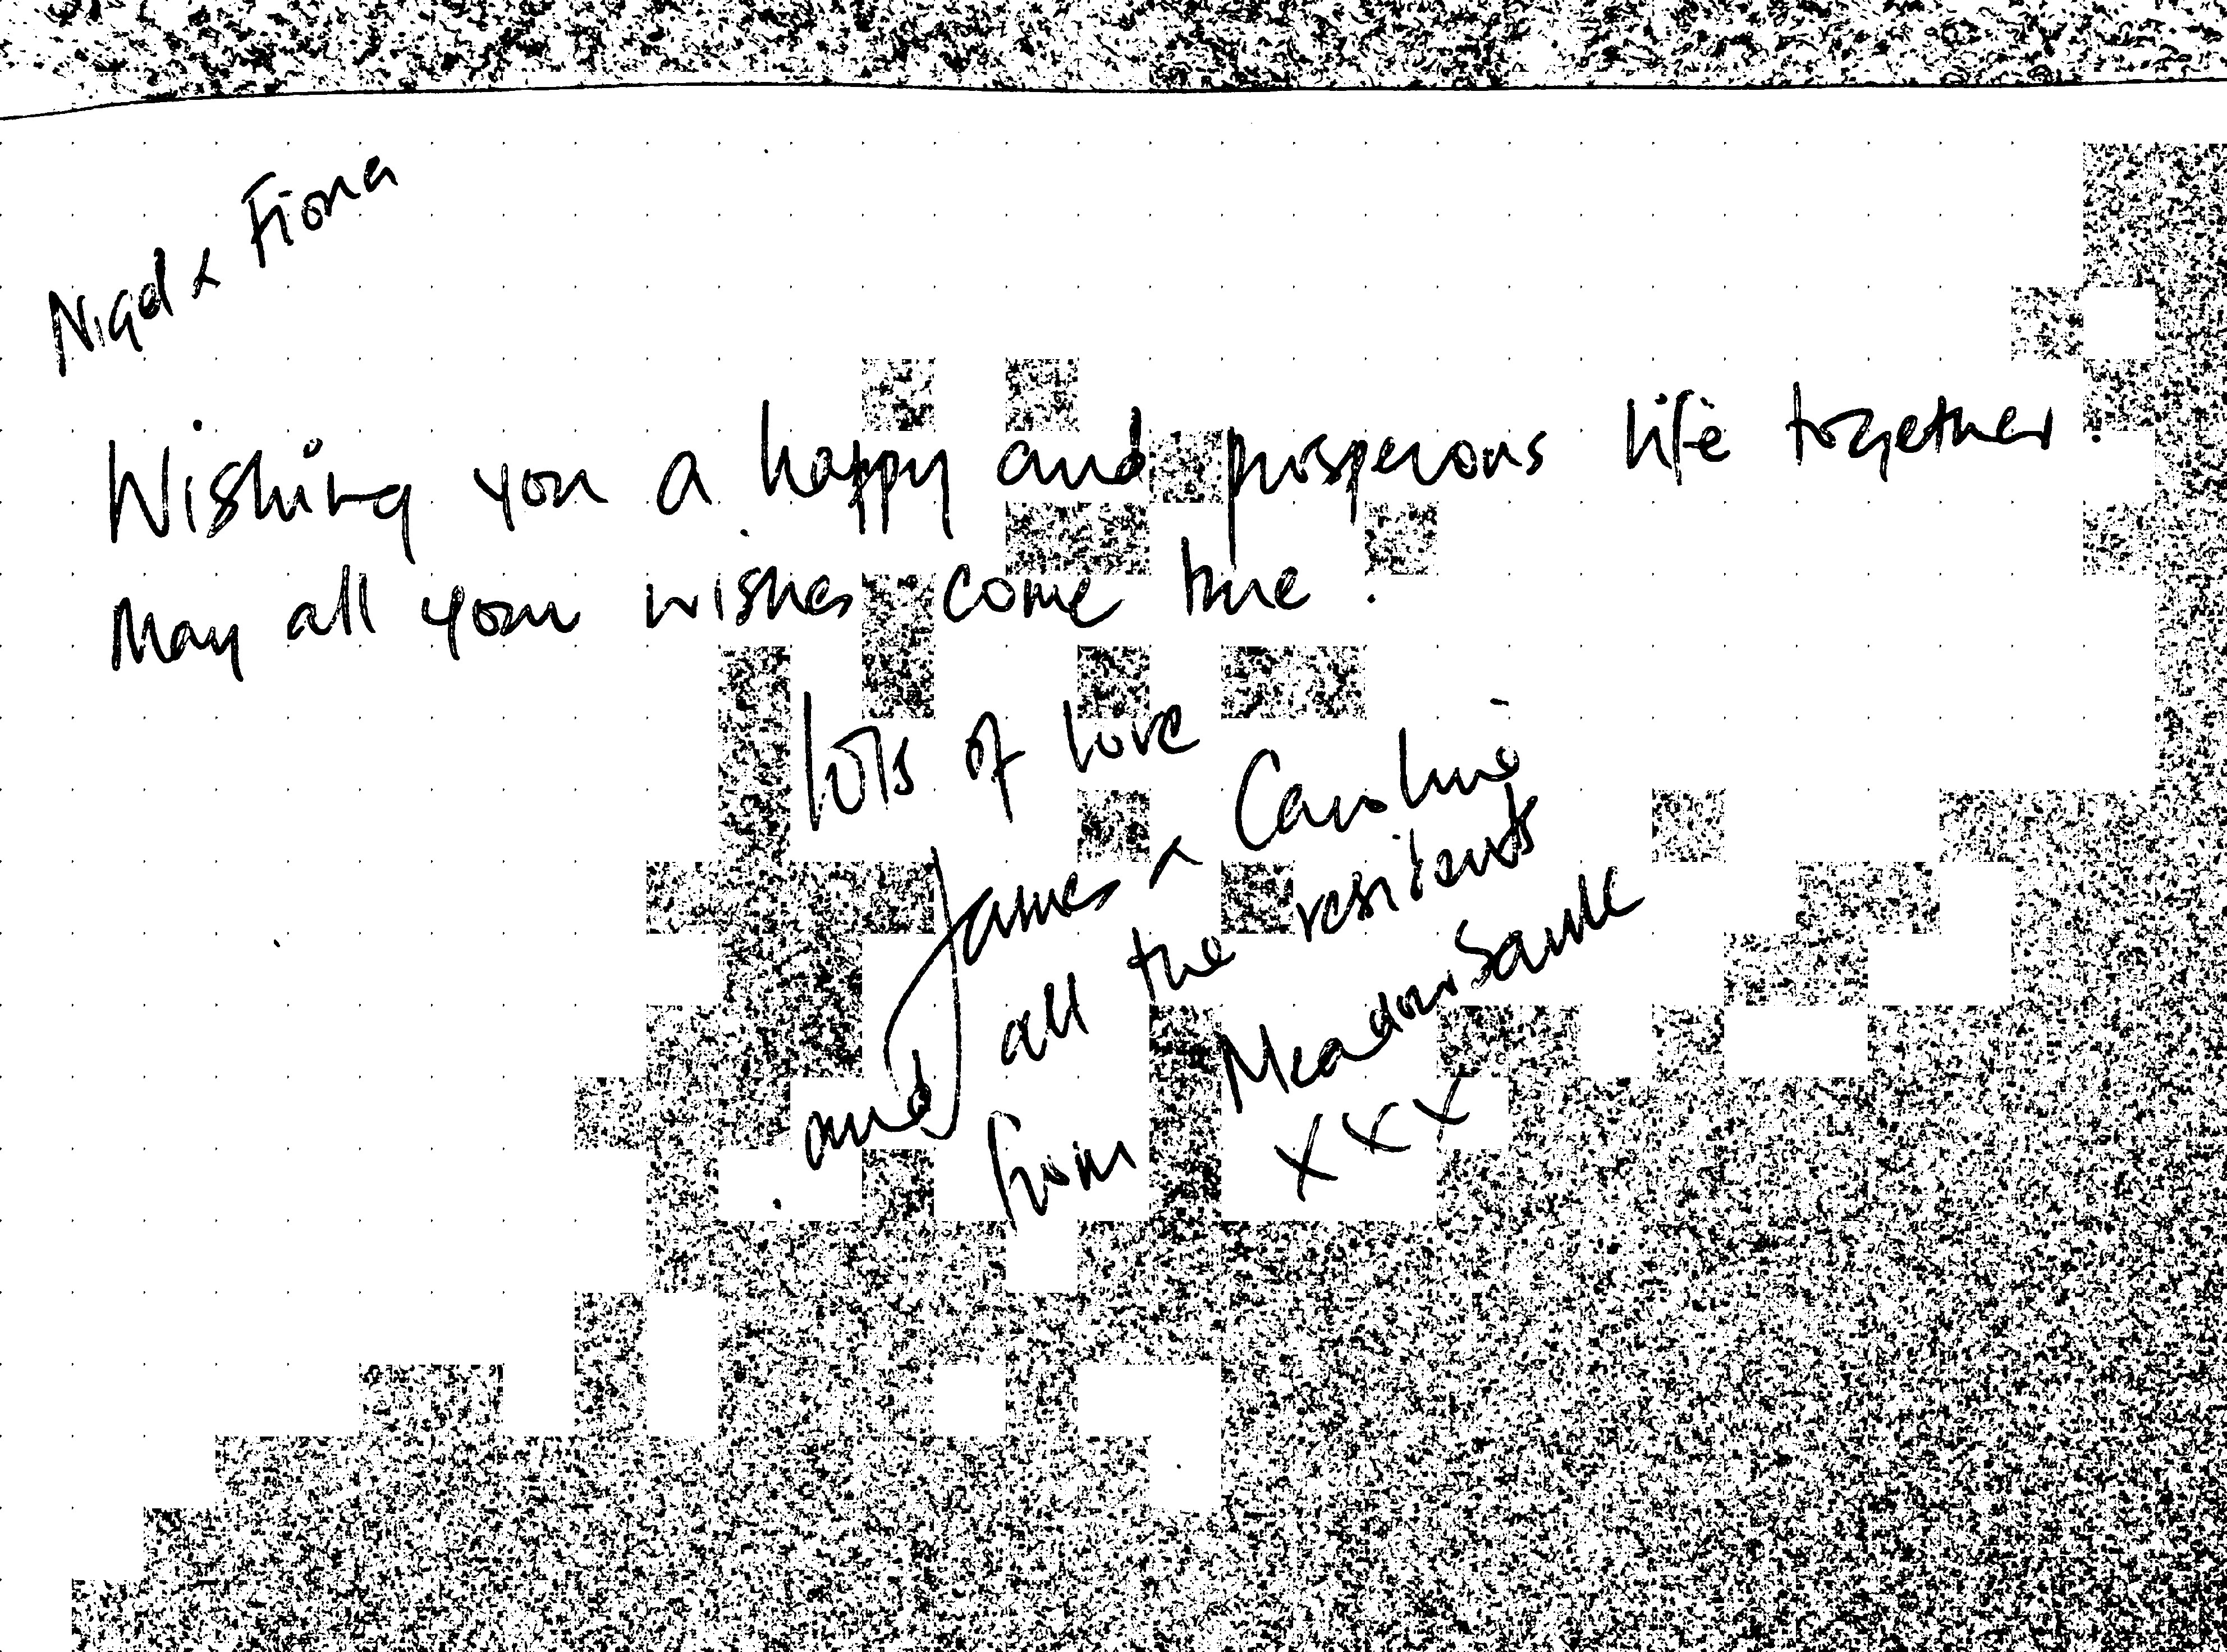 Nigel & Fiona
Wishing you a happy and prosperous life together.
May all your wishes come true.
lots of love
James & Caroline
and all the residents
from
xxx